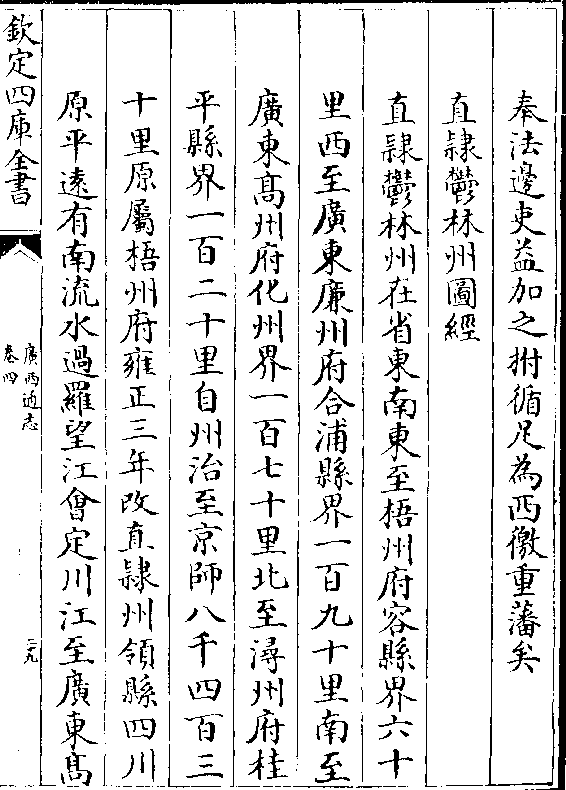 奉法邊吏益加之拊循足為西徼重藩矣
直隷鬱林州圖經
直隷鬱林州在省東南東至梧州府容縣界六十
里西至廣東廉州府合浦縣界一百九十里南至
廣東髙州府化州界一百七十里北至潯州府桂
平縣界一百二十里自州治至京師八千四百三
十里原屬梧州府雍正三年改直隷州領縣四川
原平逺有南流水過羅望江會定川江至廣東髙
欽定四庫全書
廣西通志
卷四
三九